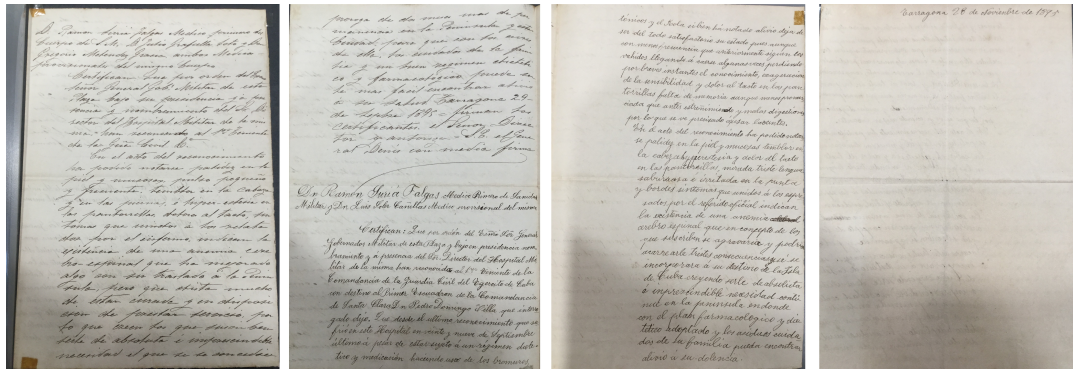 D. Ramón Guixá Falgas Medico primero del
Cuerpo de S. M. D. Julio
Gregorio Melendez ambos Medicos
provisionales del mismo Cuerpo
Certifican: Que por orden del Exmo
Señor General Gob. Militar de esta
Plaza bajo su presidencia y a pre-
sencia y nombramiento del Sr. Di-
rector del Hospital Militar de la mis-
ma han reconocido al 1er Teniente
de la Gua. Civil &.
En el acto del reconocimiento
ha podido notarse palidez en la
piel y mucosas pulso pequeño
y frecuente, temblor en la cabeza
y en las piernas é hiper-estesia en
las pantorrillas dolora al tacto, sin
tomas que unidos á los relata
dos por el enfermo, indican la
existencia de una anemia cere
bro espinal que ha mejorado
algo con su traslado á la Penin
sula, pero que dista mucho
de estar curada y en disposi
cion de prestar servicio, por
lo que creen los que suscriben
serle de absoluta é imprescindible
necesidad el que se le conceda
prorroga de dos meses mas de per
manencia en la Peninsula y esta
Ciudad, para que con los cuida
dos de la fami
lia y un buen regimen dietéti
co y farmacologico pueda se
le mas facil encontrar alivio
á su salud. Tarragona 29
de Sepbre 1895 = firman los
certificantes el Sr. Direc
tor = = El Gene
ral Denis con media firma
Dn. Ramón Guixá Falgas Medico Primero de Sanidad
Militar y Dn. Luis Sola Cañellas Medico provisional del mismo
Certifican: Que por orden del Exmo Sor. General
Gobernador Militar de esta Plaza y bajo su presidencia nom
bramiento y a presencia del Sor. Director del Hospital Mi-
litar de la misma han reconocido al 1er Teniente de la
Comandancia de la Guardia Civil del Ejercito de Cuba
con destino al primer Escuadron de la Comandancia
de Santa Clara Dn Pedro Domingo Vella, que inter-
rogado dijo: Que desde el ultimo reconocimiento que su-
frió en este Hospital en veinte y nueve de Septiembre
ultimo á pesar de estar sujeto á un régimen diete-
tico y medicación haciendo uso de los bromuros,
tonicos y el Kola si bien há notado alivio dista de
ser del todo satisfactorio su estado pues aunque
con menos frecuencia que anteriormente siguen los
vahidos llegando á veces algunas veces perdiendo
por breves instantes el conocimiento, exageracion
de la sensibilidad y dolor al tacto en las pan-
torrillas falta de memoria aunque menos pronun-
ciada que antes estreñimiento y malas digestiones,
por lo que se vé precisado á estar
En el acto del reconocimiento ha podido notar-
se palidez en la piel y mucosas temblor en
la cabeza hiperestesia y dolor al tacto
en las pantorrillas, mirada triste lengua
saburrosa é irritada en la punta
y bordes sintomas que unidos á los expre-
sados por el referido oficial indican
la existencia de una anemia
cerebro espinal que en concepto de los
que suscriben se agravaria y podria
acarrearle tristes consecuencias si se
incorporara á su destino de la Isla
de Cuba creyendo serle de absoluta
é imprescindible necesidad conti-
nue en la peninsula en donde
con el plan farmacologico y die-
tetico adoptado y los asiduos cuida-
dos de su familia pueda encontrar
alivio á su dolencia.
Tarragona 28 de Noviembre de 1895